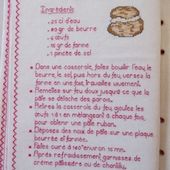 Ingrédients
. 25 cl d'eau
. 80 gr de beurre
. 4 œufs
. 125 gr de farine
. 1 pincée de sel
Dans une casserole, faites bouillir l'eau, le
beurre, le sel, puis hors du feu, versez la
farine en une fois, travaillez vivement.
Remettez sur feu doux jusqu'à ce que la
pâte se détache des parois.
Retirez la casserole du feu, ajoutez les
œufs 1 à 1 en mélangeant à chaque fois,
pour obtenir une pâte
Déposez des noix de pâte sur une plaque
beurrée et farinée.
Faites cuire à
Après refroidissement garnissez de
crème pâtissière ou de chantilly.